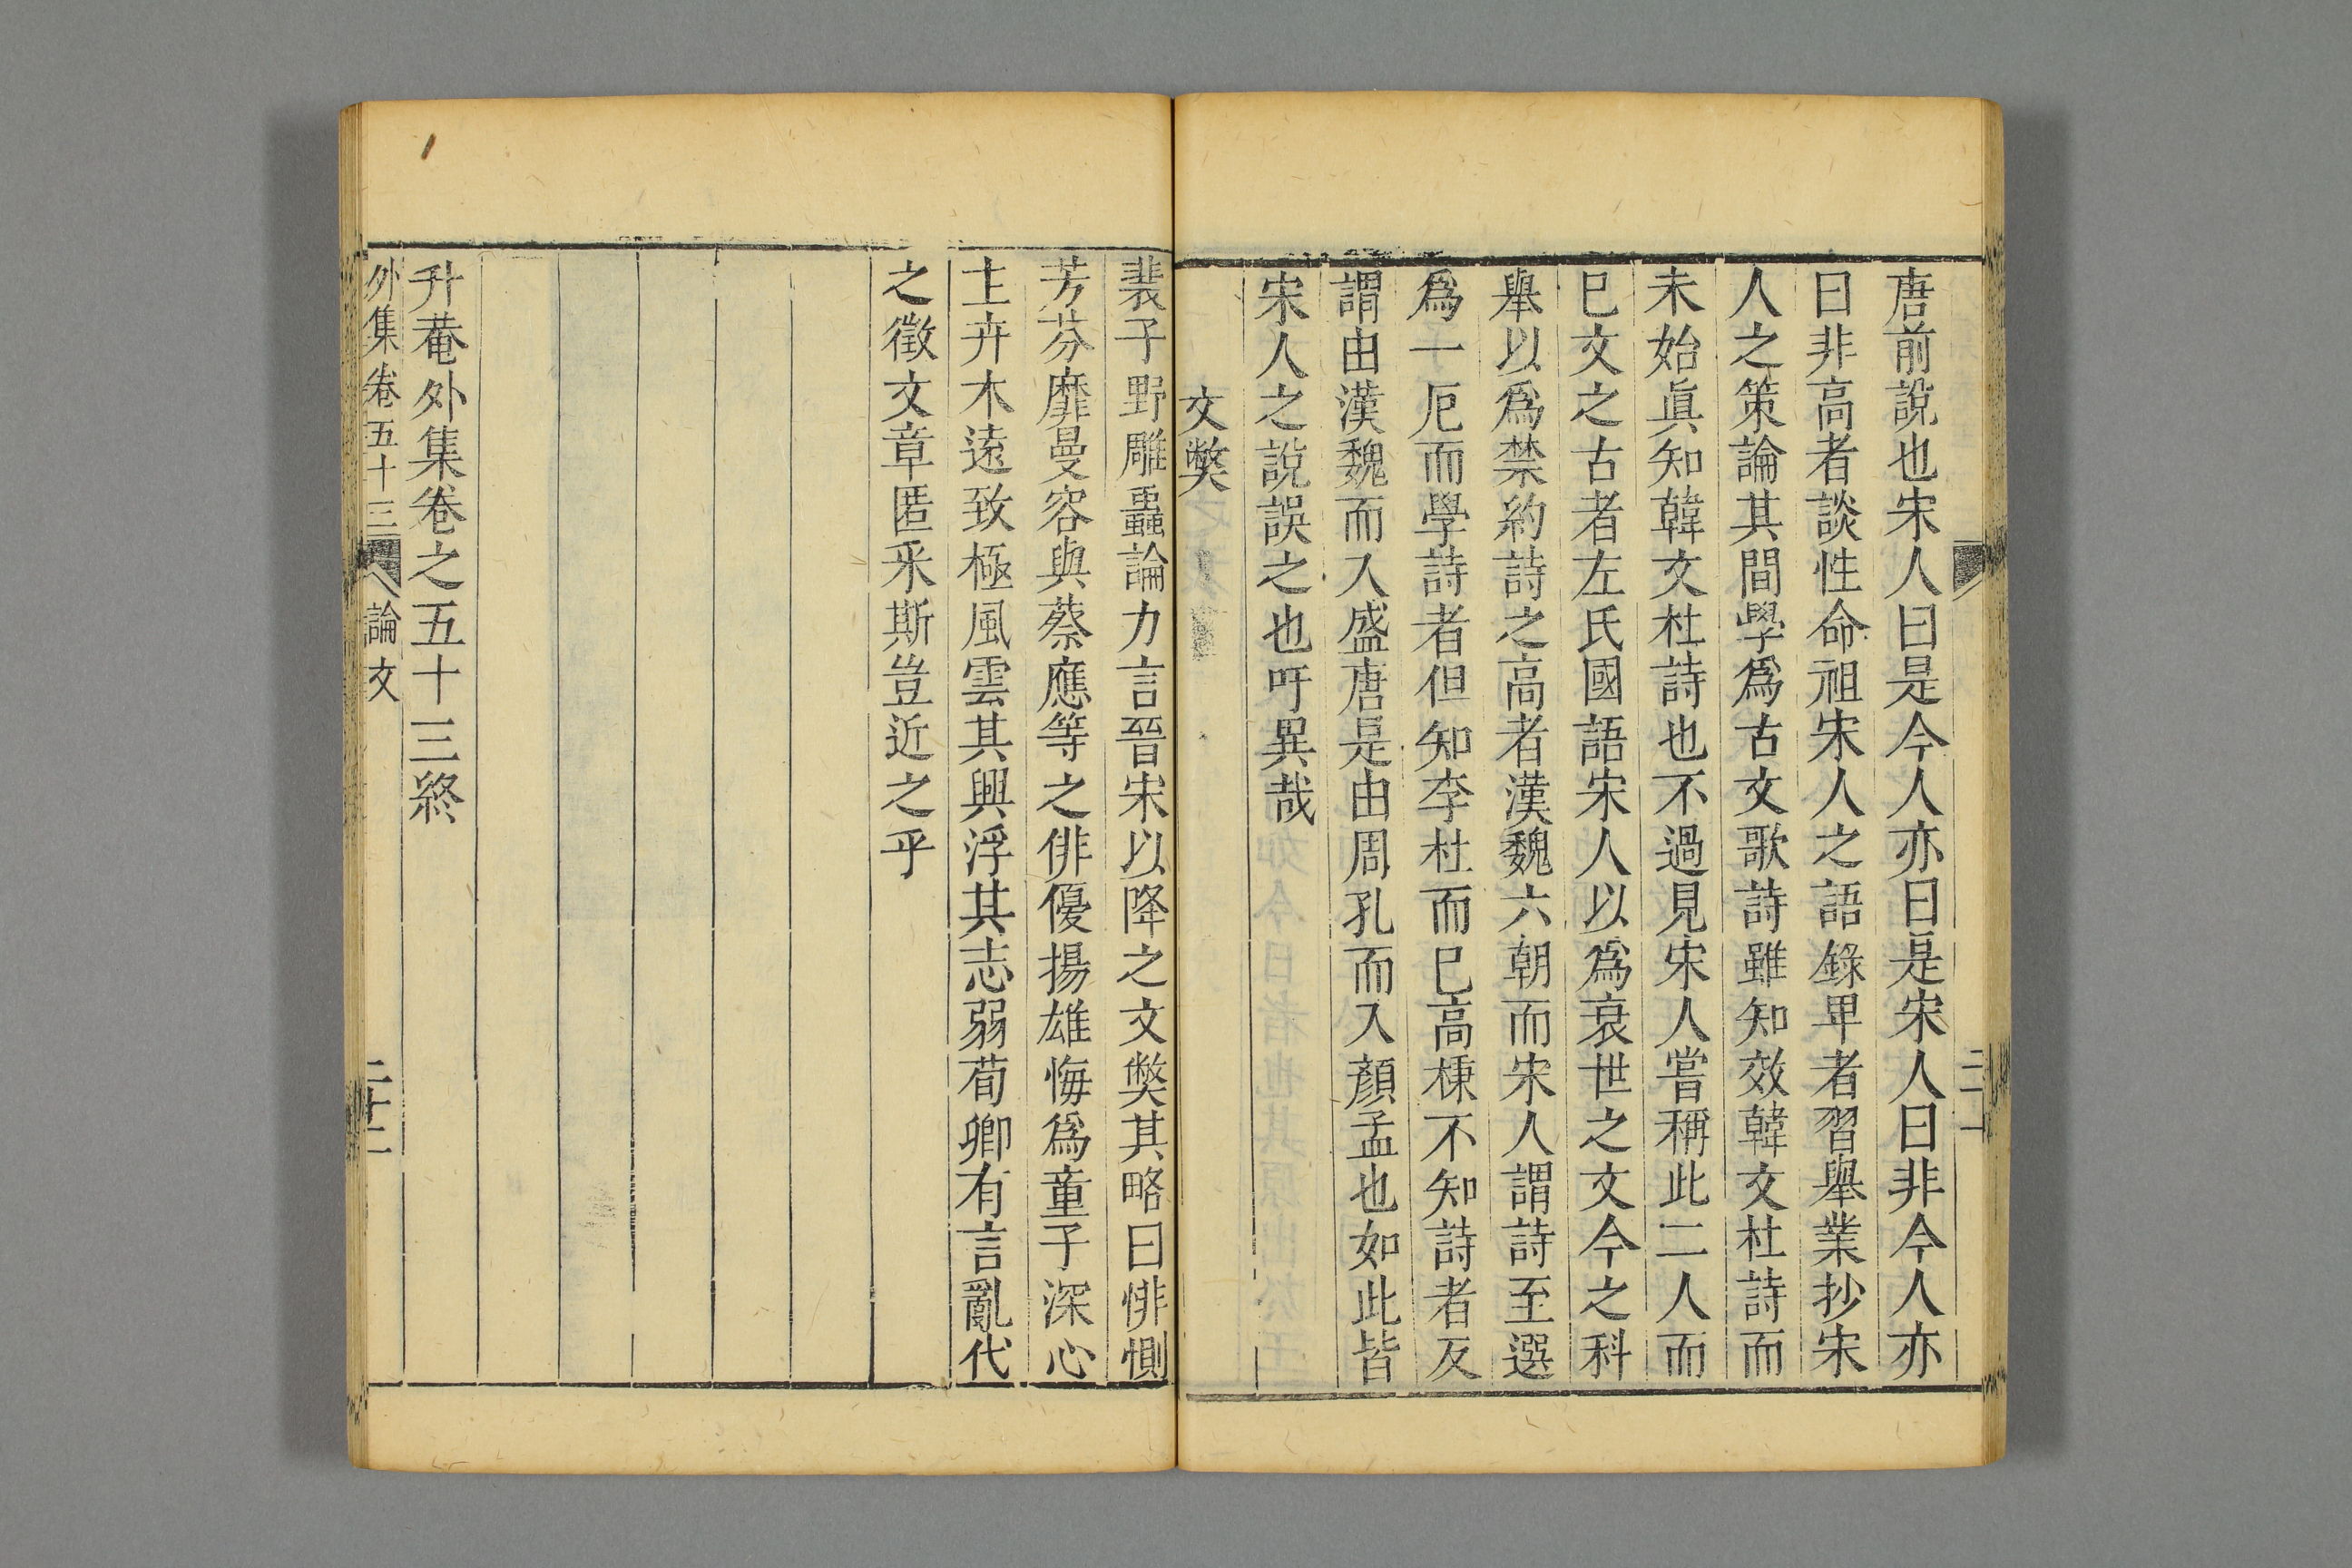 唐前說也宋人曰是今人亦曰是宋人曰非今人亦
曰非高者談性命祖宋人之語錄卑者習舉業抄宋
人之策論其間學爲古文歌詩雖知效韓文杜詩而
未始眞知韓文杜詩也不過見宋人嘗稱此二人而
巳文之古者左氏國語宋人以爲衰世之文今之科
舉以爲禁約詩之高者漢魏六朝而宋人謂詩至選
爲一厄而學詩者但知李杜而巳高棟不知詩者反
謂由漢魏而入盛唐是由周孔而入顏孟也如此皆
宋人之說誤之也吁異哉
文弊
裴子野雕蟲論力言晉宋以降之文弊其略曰悱惻
芳芬靡曼容與蔡應等之俳優揚雄悔爲童子深心
主卉木遠致極風雲其興浮其志弱荀卿有言亂代
之徵文章匿采斯豈近之乎
升菴外集卷之五十三終
外集卷五十三 論文 二十二